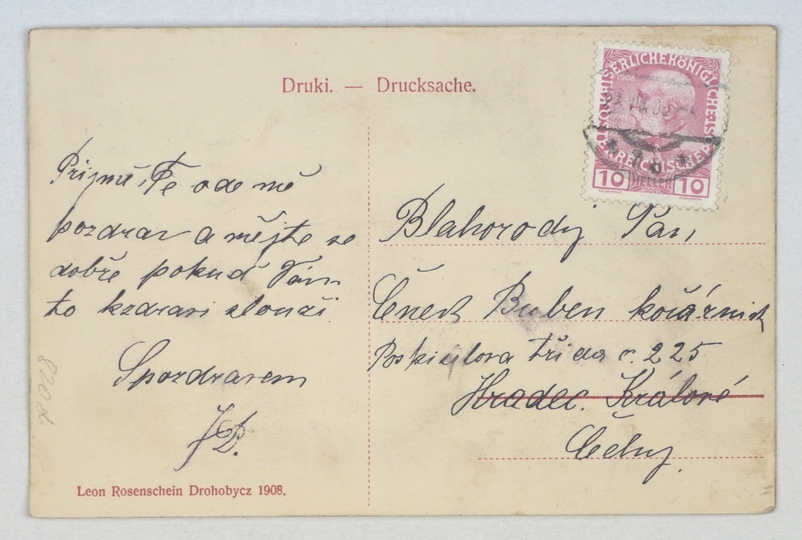 Druki. — Drucksache.
KAISERLICHE KÖNIGLICHE
1908
10 HELLER 10
Prijměte ode mě
pozdrav a mějte se
dobře pokud Vám
to kzdraví slouži
Spozdravem
JB.
Blahorodý Pan
Čeněk Buben kočárník
Pospíšilova třída č. 225
Hradec. Králové
Čechy.
820
Leon Rosenschein Drohobycz 1908.